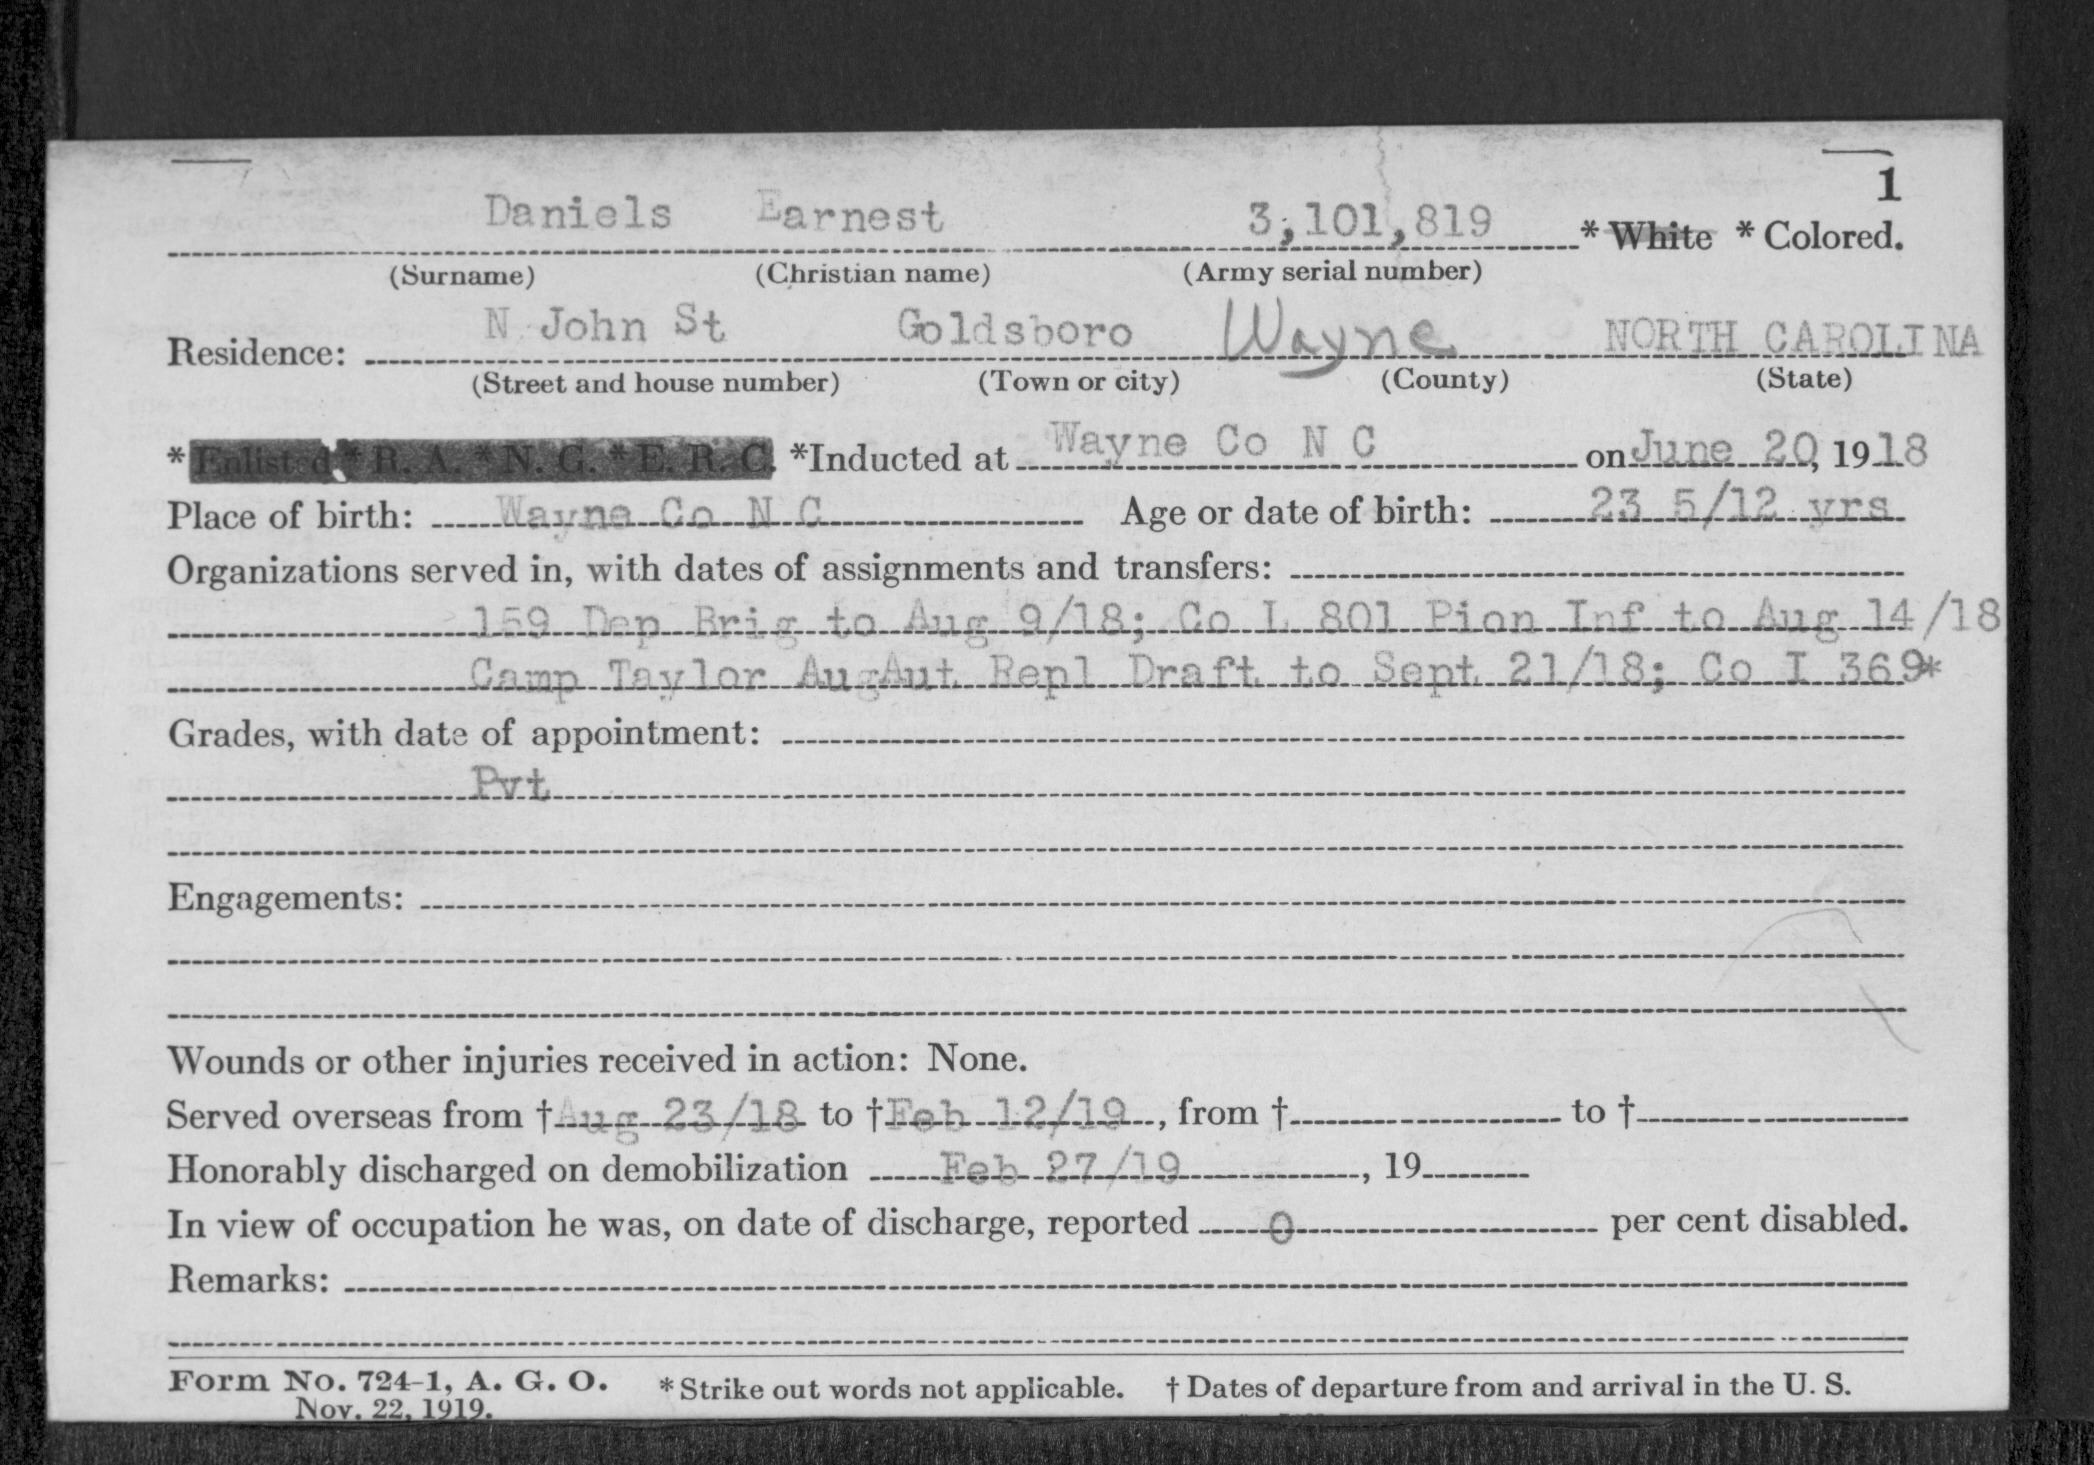 1
Daniels Earnest 3,101,819 * White * Colored.
(Surname) (Christian name) (Army serial number)
Residence: N John St Goldsboro Wayne NORTH CAROLINA
(Street and house number) (Town or city) (County) (State)
* Enlisted * R. A. * N. G. * E. R. C. *Inducted at Wayne Co N C on June 20, 1918
Place of birth: Wayne Co N C Age or date of birth: 23 5/12 yrs
Organizations served in, with dates of assignments and transfers:
159 Dep Brig to Aug 9/18; Co L 801 Pion Inf to Aug 14/18
Camp Taylor AugAut Repl Draft to Sept 21/18; Co I 369*
Grades, with date of appointment:
Pvt
Engagements:
Wounds or other injuries received in action: None.
Served overseas from † Aug 23/18 to † Feb 12/19, from † to †
Honorably discharged on demobilization Feb 27/19, 19
In view of occupation he was, on date of discharge, reported 0 per cent disabled.
Remarks:
Form No. 724-1, A. G. O. * Strike out words not applicable. † Dates of departure from and arrival in the U. S.
Nov. 22, 1919.